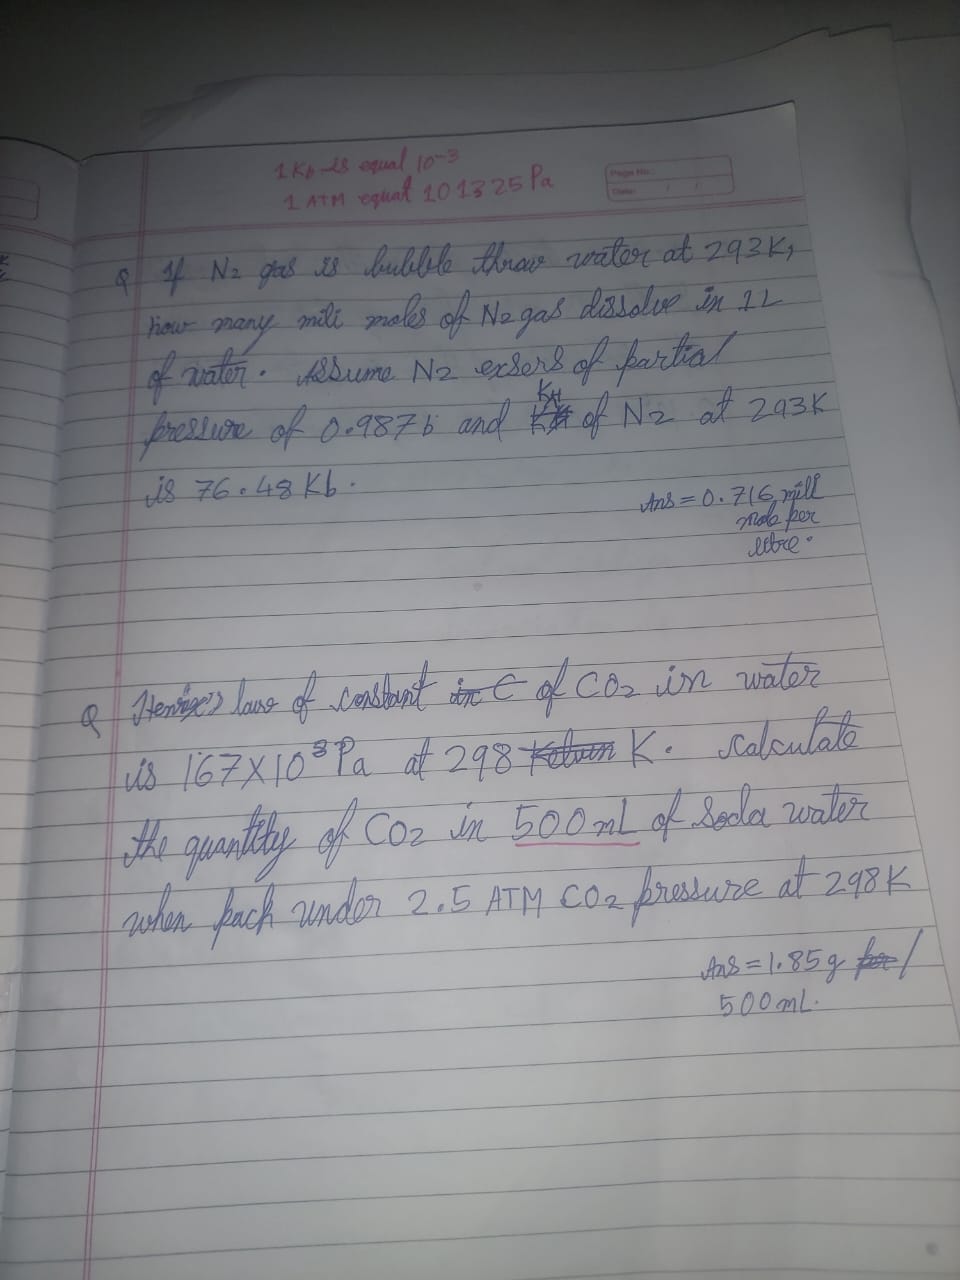 1 Kb is equal 10-3
1 ATM equat 101325 Pa
Page No.:
Date: / /
Q If N2 gas is bubble thraw water at 293K,
how many mili moles of N2 gas dissolve in 1L
of water. Assume N2 exsers of partial
pressure of 0.987b and KH of N2 at 293K
is 76.48 Kb.
Ans = 0.716 mill
mole per
litre.
Q law of constant in C of CO2 in water
is 167X10³ Pa at 298 Kelvin K. Calculate
the quantity of CO2 in 500 mL of Soda water
when pack under 2.5 ATM CO2 pressure at 298K
Ans = 1.85g per /
500 mL.